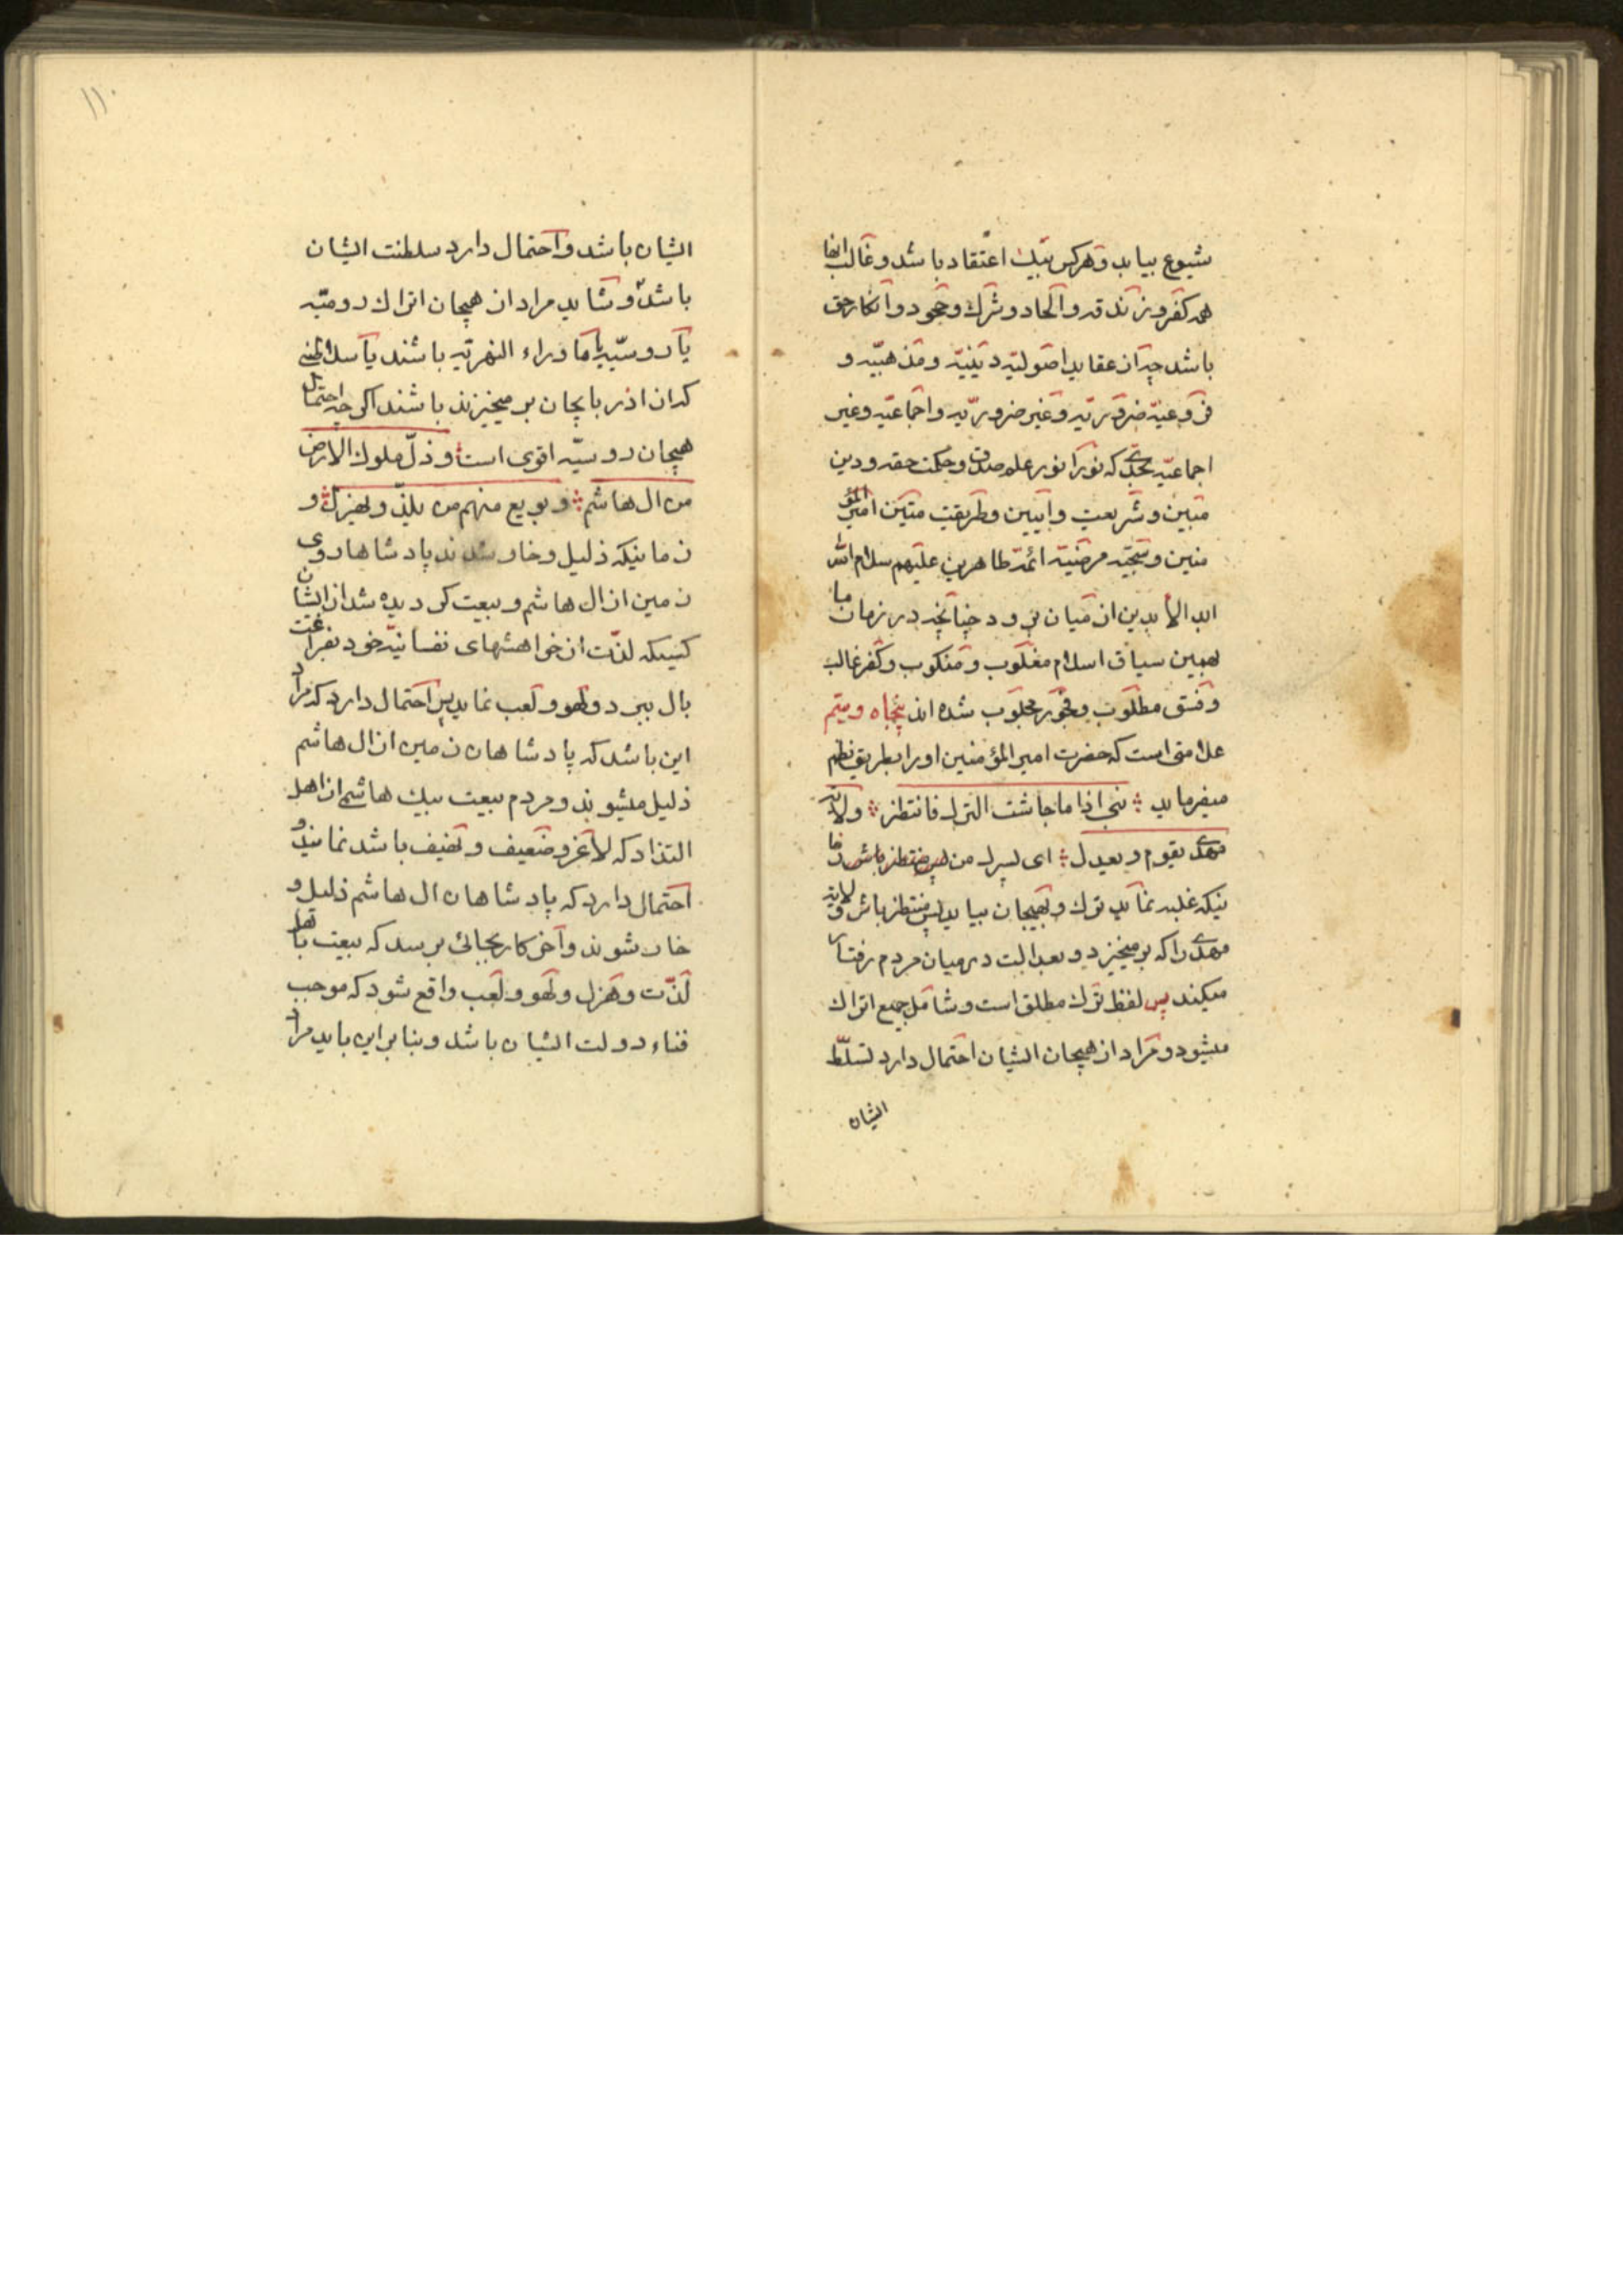 شیوع بیابد وهرکس بیک اعتقاد باشد وغالب انها
همه کفر وزندقه والحاد وشرک وجحود وانکار حق
باشد چه از عقاید اصولیّه دینیّه ومذهبیّه و
فروعیّه ضروریّه وغیر ضروریّه واجماعیّه وغیر
اجماعیّه بحدّی که نورا نور علم صدق وحکمت حقه ودین
مبین وشریعت وآیین وطریقت متین امیر المؤ
منین وسجیّه مرضیّه ائمّه طاهرین علیهم سلام الله
ابد الابدین از میان برود چنانچه در زمان ما
بهمین سیاق اسلام مغلوب ومنکوب وکفر غالب
وفسق مطلوب وفجور محبوب شده اند پنجاه ویتم
علامتی است که حضرت امیر المؤمنین اورا بطریق نظم
میفرماید ؛ بنی اذا ما جاشت الترک فانتظر ؛ ولایة
مهدی یقوم ویعدل ؛ ای پسرک من پس منتظر باش زما
نیکه غلبه نماید ترک وبهیجان بیاید پس منتظر باش ولایة
مهدی را که برمیخیزد وبعدالت در میان مردم رفتار
میکند پس لفظ ترک مطلق است وشامل جمیع اتراک
میشود ومراد از هیجان ایشان احتمال دارد تسلّط
ایشان
۱۱۰
ایشان باشد واحتمال دارد سلطنت ایشان
باشد وشاید مراد از هیجان اتراک رومیّه
یا روسیّه یا ماوراء النهریّه باشند یا سلاطینی
که از اذربایجان بر میخیزند باشند اگر چه احتمال
هیجان روسیّه اقوی است وذلّ ملوک الارض
من ال هاشم ؛ وبویع منهم من یلذّ ویهزل ؛ و
زمانیکه ذلیل وخار شدند پادشاها روی
زمین از ال هاشم وبیعت کردیده شد از ایشان
کسیکه لذّت از خواهشهای نفسانیّه خود بفراغت
بال ببرد ولهو ولعب نماید پس احتمال دارد که مراد
این باشد که پادشاهان زمین از ال هاشم
ذلیل میشوند ومردم بیعت بیک هاشمی از اهل
التذاد که لاغر وضعیف ونحیف باشد نمایند و
احتمال دارد که پادشاهان ال هاشم ذلیل و
خار شوند وآخر کار بجائی برسد که بیعت باهل
لذّت وهزل ولهو ولعب واقع شود که موجب
فناء دولت ایشان باشد وبنابر این باید مراد